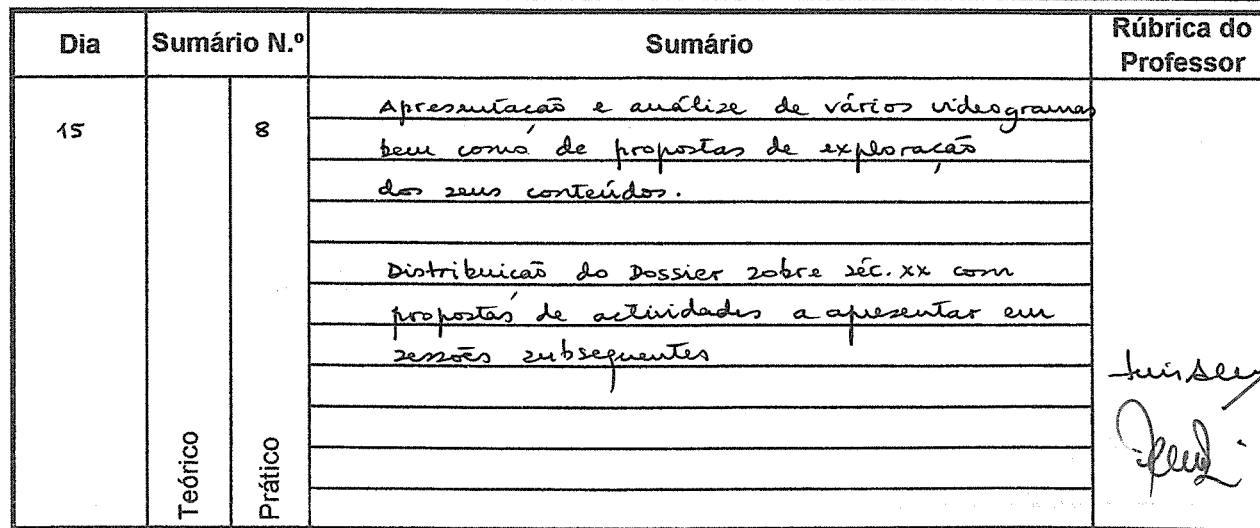 Dia Sumário N.º Sumário Rúbrica do
Professor
Apresentação e análize de vários videogramas
15 8
bem como de propostas de exploração
dos seus conteúdos.
Distribuição do Dossier sobre séc. XX com
propostas de actividades a apresentar em
sessões subsequentes
Teórico Prático